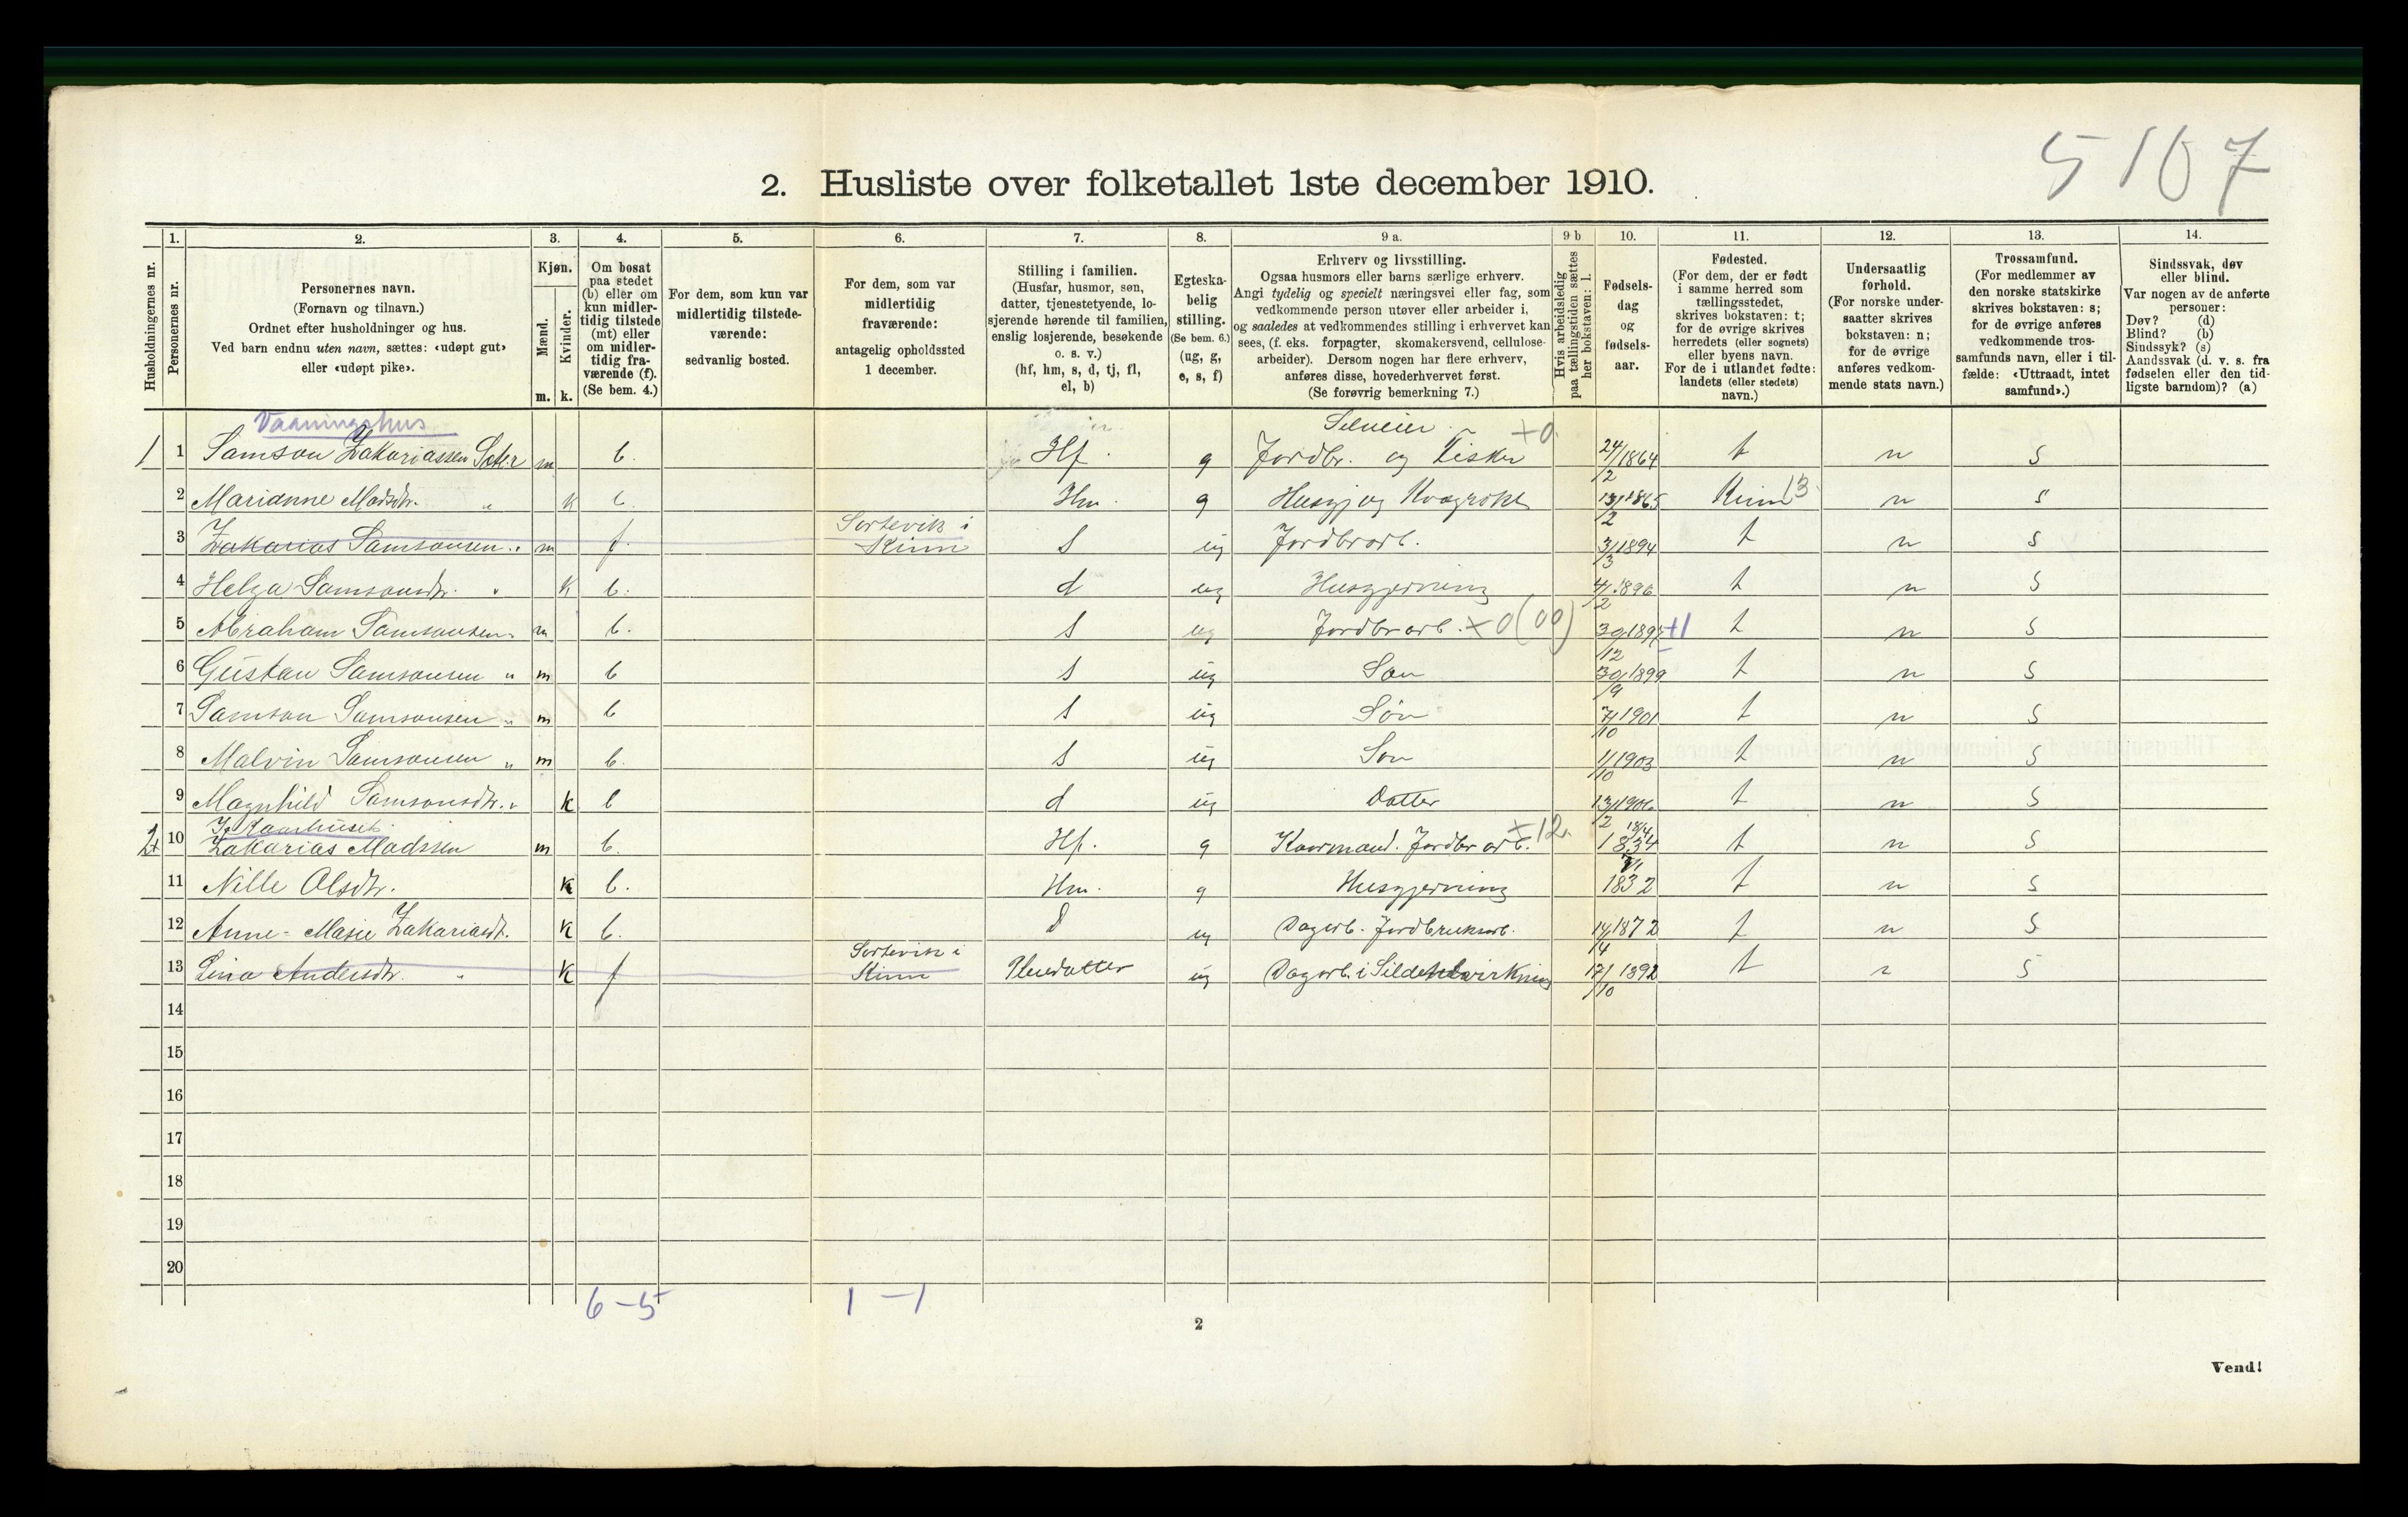 5107
2. Husliste over folketallet 1ste december 1910.
Husholdningernes nr.
1.
Personernes nr.
2.
Personernes navn.
(Fornavn og tilnavn.)
Ordnet efter husholdninger og hus.
Ved barn endnu uten navn, sættes: «udøpt gut»
eller «udøpt pike».
3.
Kjøn.
Mænd.
Kvinder.
m. k.
4.
Om bosat
paa stedet
(b) eller om
kun midler-
tidig tilstede
(mt) eller
om midler-
tidig fra-
værende (f).
(Se bem. 4.)
5.
For dem, som kun var
midlertidig tilstede-
værende:
sedvanlig bosted.
6.
For dem, som var
midlertidig
fraværende:
antagelig opholdssted
1 december.
7.
Stilling i familien.
(Husfar, husmor, søn,
datter, tjenestetyende, lo-
sjerende hørende til familien,
enslig losjerende, besøkende
o. s. v.)
(hf, hm, s, d, tj, fl,
el, b)
8.
Egteska-
belig
stilling.
(Se bem. 6.)
(ug, g,
e, s, f)
9 a.
Erhverv og livsstilling.
Ogsaa husmors eller barns særlige erhverv.
Angi tydelig og specielt næringsvei eller fag, som
vedkommende person utøver eller arbeider i,
og saaledes at vedkommendes stilling i erhvervet kan
sees, (f. eks. forpagter, skomakersvend, cellulose-
arbeider). Dersom nogen har flere erhverv,
anføres disse, hovederhvervet først.
(Se forøvrig bemerkning 7.)
9 b
Hvis arbeidsledig
paa tællingstiden sættes
her bokstaven: l.
10.
Fødsels-
dag
og
fødsels-
aar.
11.
Fødested.
(For dem, der er født
i samme herred som
tællingsstedet,
skrives bokstaven: t;
for de øvrige skrives
herredets (eller sognets)
eller byens navn.
For de i utlandet fødte:
landets (eller stedets)
navn.)
12.
Undersaatlig
forhold.
(For norske under-
saatter skrives
bokstaven: n;
for de øvrige
anføres vedkom-
mende stats navn.)
13.
Trossamfund.
(For medlemmer av
den norske statskirke
skrives bokstaven: s;
for de øvrige anføres
vedkommende tros-
samfunds navn, eller i til-
fælde: «Uttraadt, intet
samfund».)
14.
Sindssvak, døv
eller blind.
Var nogen av de anførte
personer:
Døv? (d)
Blind? (b)
Sindssyk? (s)
Aandssvak (d. v. s. fra
fødselen eller den tid-
ligste barndom)? (a)
Vaaningshus
Selveier
1 1 Samson Zakariassen m b. Hf. g Jordbr. og Fisker +0 24/2 1864 t n s
2 Marianne Madsdtr. " k b. Hm. g Husgj og Kvægrøkt 13/2 1865 Kinn 13 n s
Sortevik i
3 Zakarias Samsonsen " m f. Kinn s ug Jordbrarb. 3/3 1894 t n s
4 Helga Samsonsdtr. " k b. d ug Husgjerning 4/2 1896 t n s
5 Abraham Samsonsen " m b. s ug Jordbrarb. +0(00) 30/12 1897 +1 t n s
6 Gustav Samsonsen " m b s ug Søn 30/9 1899 t n s
7 Samson Samsonsen " m b s ug Søn 7/10 1901 t n s
8 Malvin Samsonsen " m b. s ug Søn 1/10 1903 t n s
9 Magnhild Samsonsdtr. " k b d ug Datter 13/2 1906 t n s
I Kaarhuset
2 10 Zakarias Madssen m b. Hf. g Kaarmand. Jordbrarb. +12. 18/4 1834 t n s
11 Nille Olsdtr. k b. Hm. g Husgjerning 1832 t n s
12 Anne-Marie Zakariasdt. k b. D ug Dagarb. Jordbruksarb. 14/4 1872 t n s
Sortevik i
13 Lina Andersdtr. " k f Kinn Pleiedatter ug Dagarb. i Sildetilvirkning 17/10 1892 t n s
14
15
16
17
18
19
20
6 – 5 1 – 1
2
Vend!